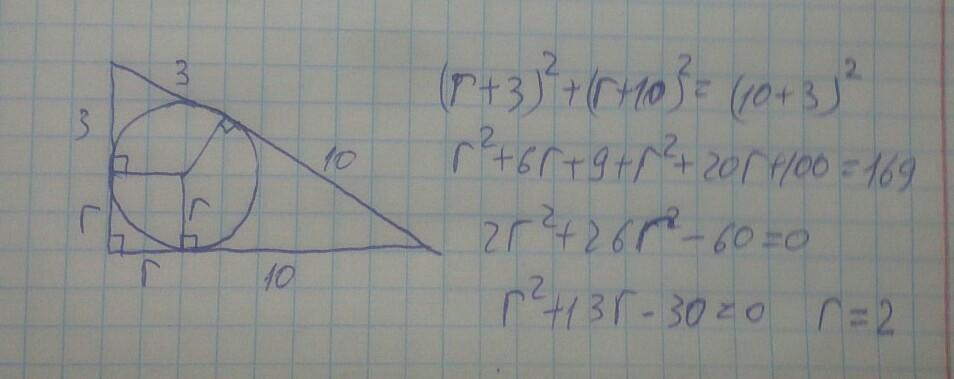 3
3
10
r
r
r
10
(r+3)²+(r+10)²=(10+3)²
r²+6r+9+r²+20r+100=169
2r²+26r²-60=0
r²+13r-30=0 r=2